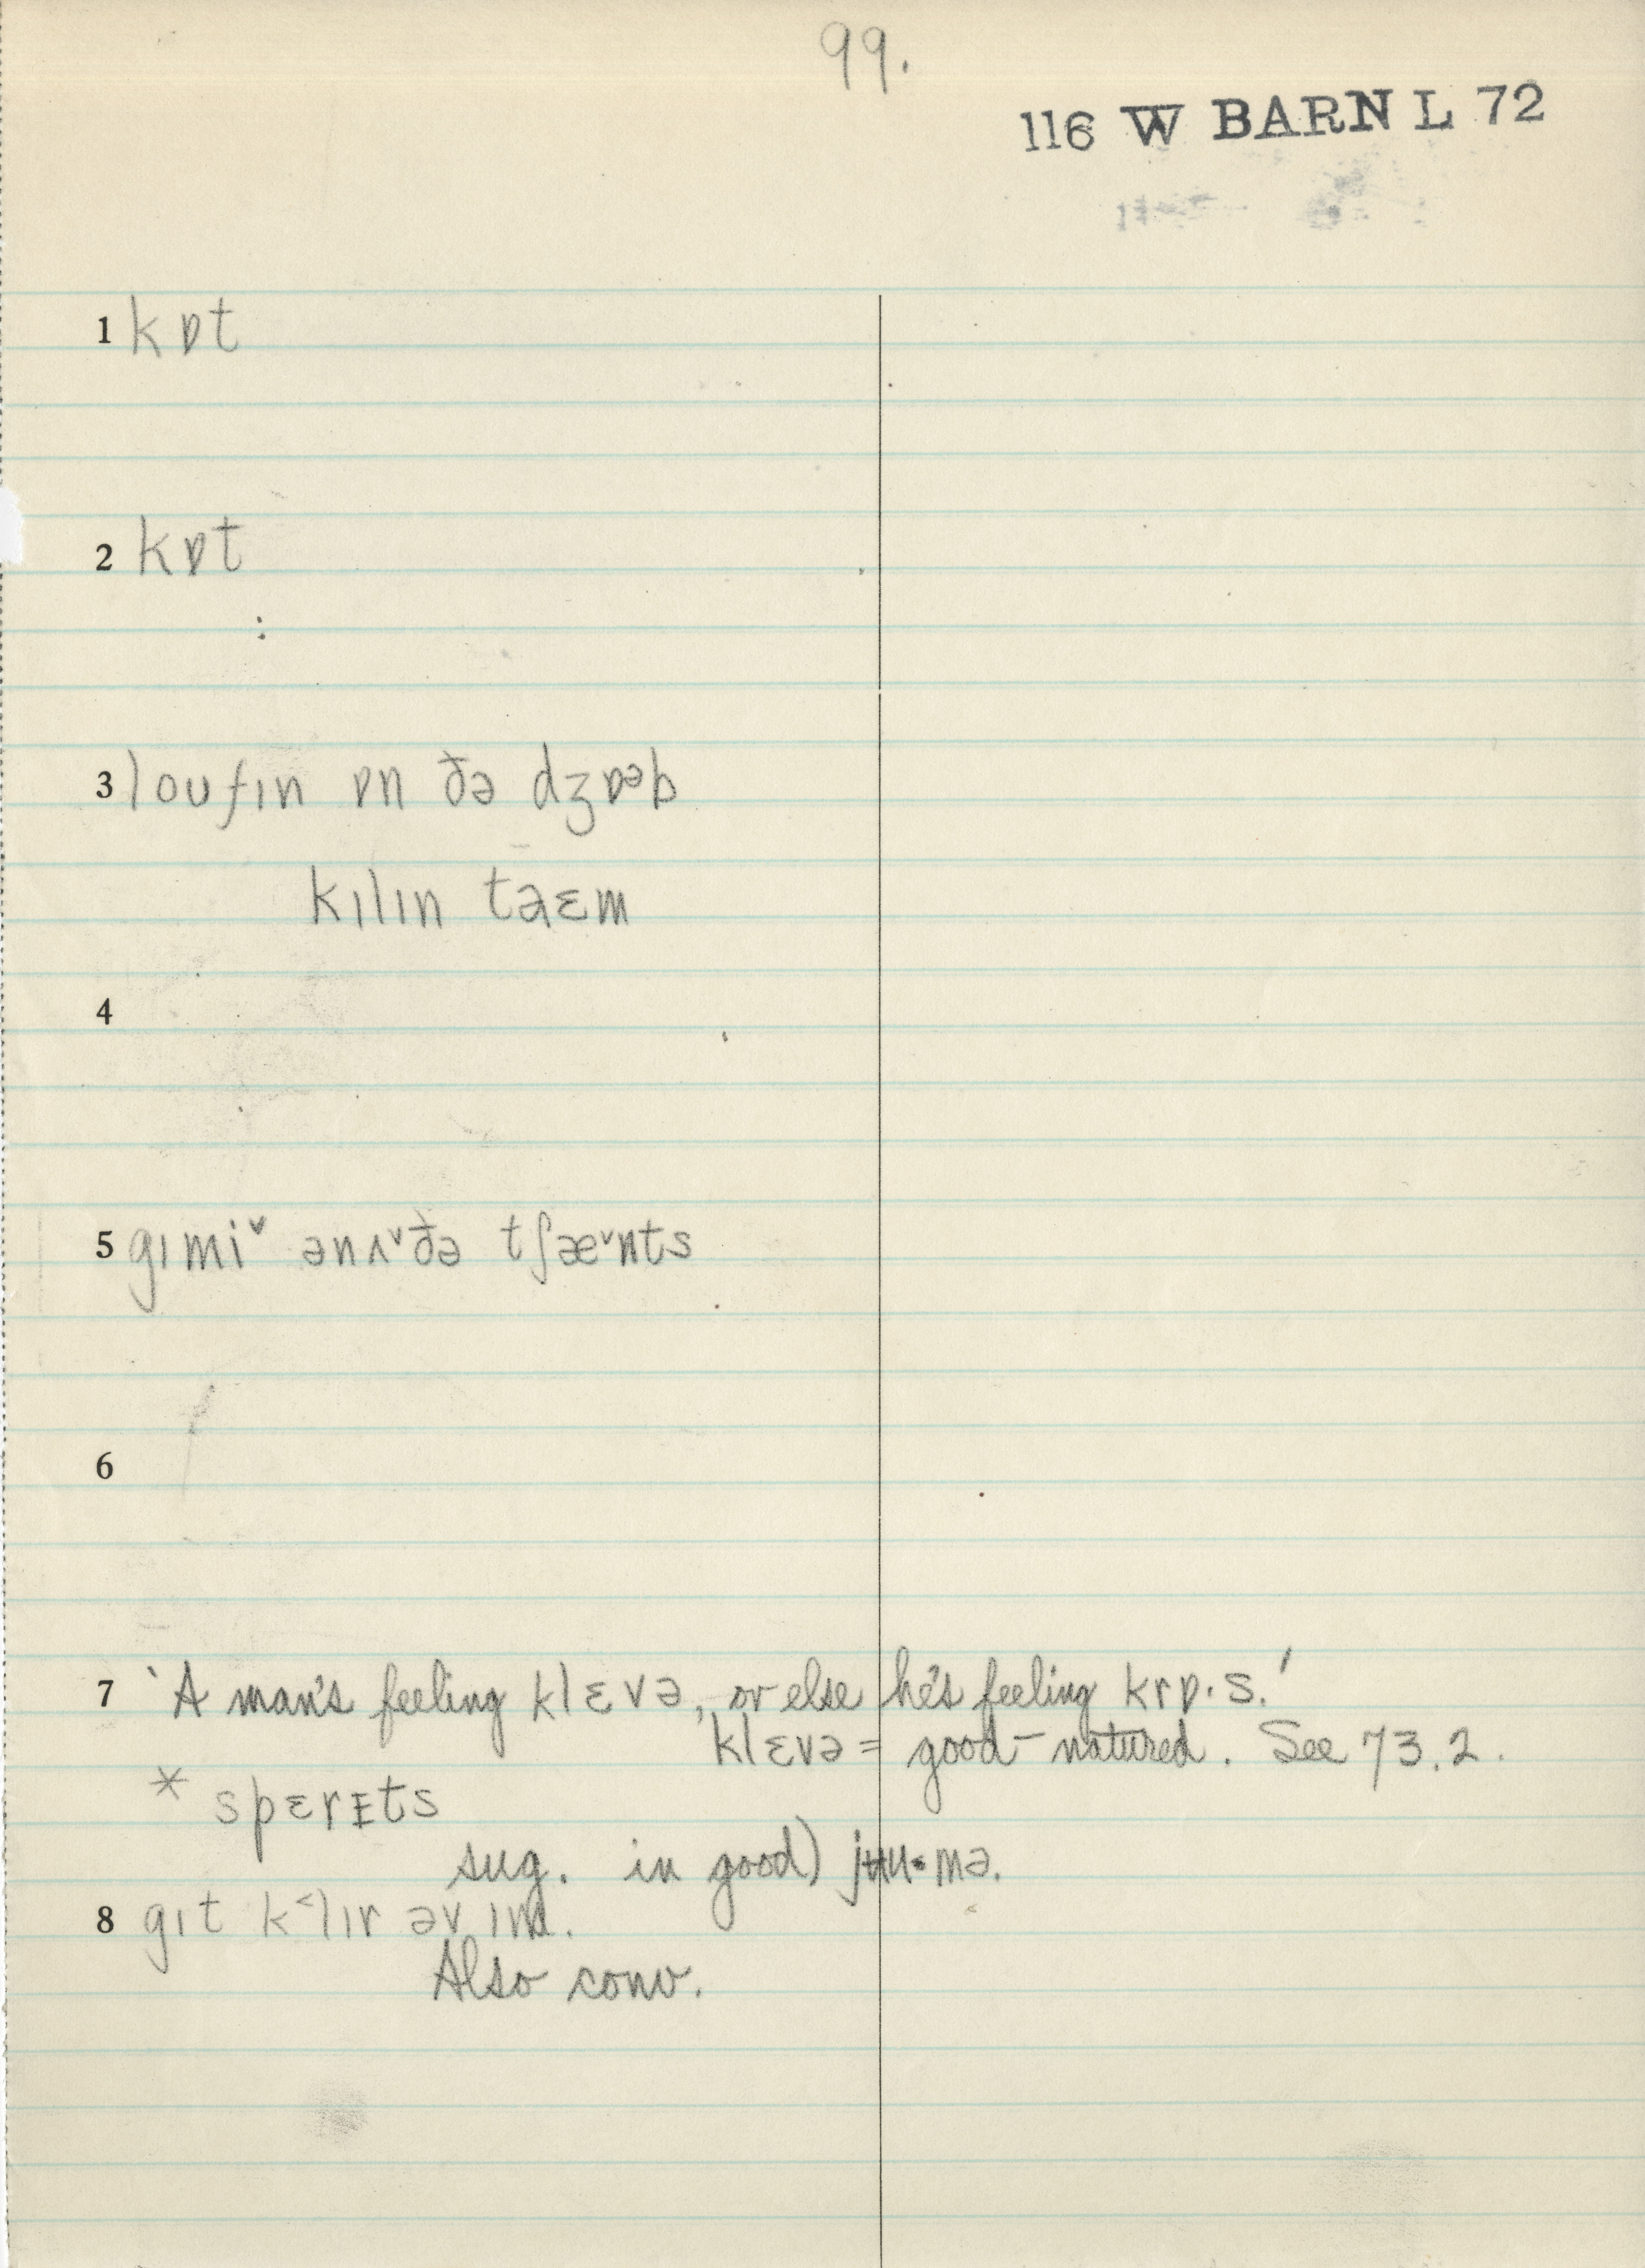 99.
116 W BARN L 72
1 kɒt
2 kɒt
:
3 loufɪn ɒn ðə dʒɒᵊb
kɪlɪn taɛm
4
5 gɪmiˇ ənʌˇðə tʃæˇnts
6
7 'A man's feeling klɛvə, or else he's feeling krɒ·s.'
klɛvə = good-natured. See 73.2.
* spɛrᴇts
sug. in good) jʉu·mə.
8 gɪt k˂lɪr əv ɪm.
Also conv.